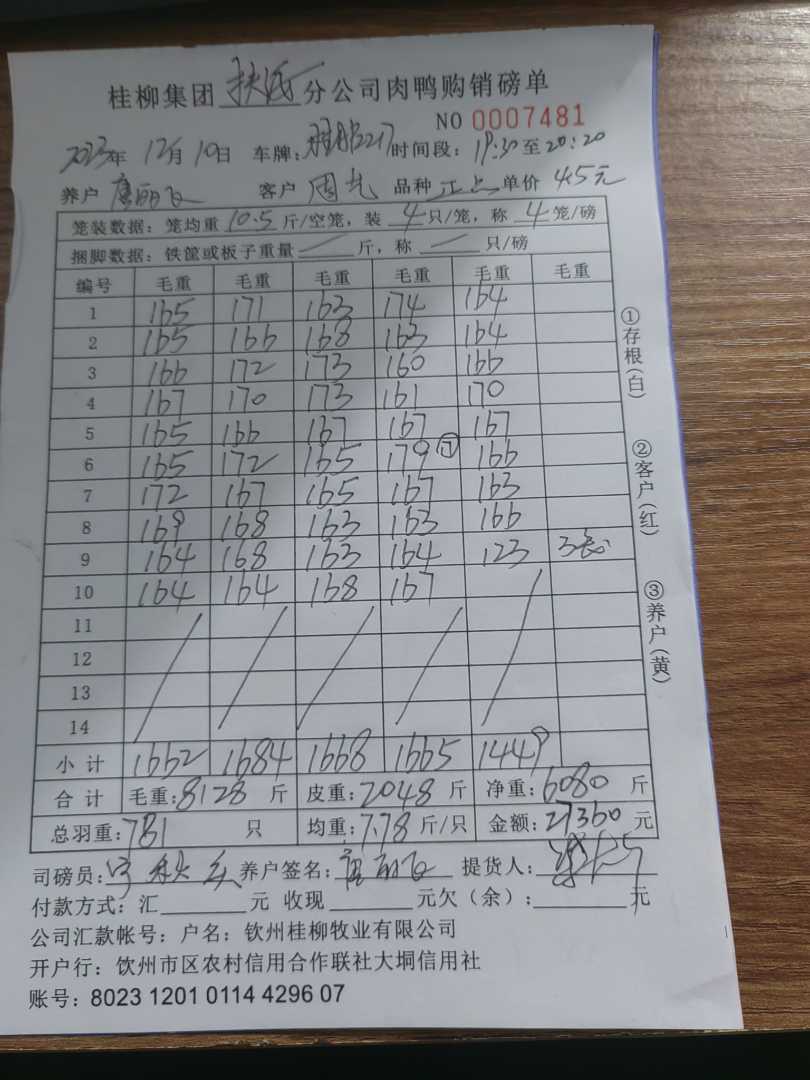 桂柳集团 扶 分公司肉鸭购销磅单
NO 0007481
2023年 12月 10日 车牌: 时间段: 19:30 至 20:20
养户 唐丽飞 客户 周 品种 正点 单价 4.5元
笼装数据: 笼均重 10.5 斤/空笼, 装 4 只/笼, 称 4 笼/磅
捆脚数据: 铁筐或板子重量 / 斤, 称 / 只/磅
编号 毛重 毛重 毛重 毛重 毛重 毛重
1 165 171 163 174 164
2 165 166 168 163 164
3 166 172 173 160 166
4 167 170 173 161 170
5 165 166 167 167 167
6 165 172 165 179 166
7 172 167 165 167 163
8 169 168 163 163 166
9 164 168 163 164 123 3
10 164 164 168 167
11
12
13
14
小计 1662 1684 1668 1665 1449
合计 毛重: 8128 斤 皮重: 2048 斤 净重: 6080 斤
总羽重: 781 只 均重: 7.78 斤/只 金额: 27360 元
司磅员: 养户签名: 唐丽飞 提货人:
付款方式: 汇 元 收现 元欠(余): 元
公司汇款帐号: 户名: 钦州桂柳牧业有限公司
开户行: 饮州市区农村信用合作联社大垌信用社
账号: 8023 1201 0114 4296 07
①存根(白)
②客户(红)
③养户(黄)